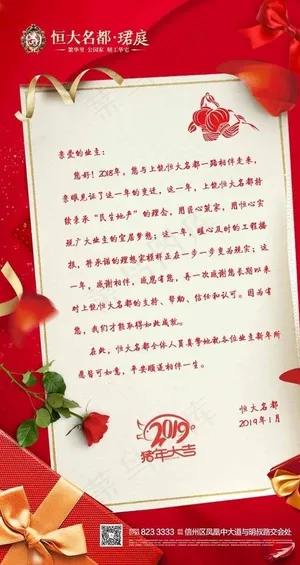 恒大名都·珺庭
繁华里 公园家 精工华宅
亲爱的业主：
您好！2018年，您与上饶恒大名都一路相伴走来，
亲眼见证了这一年的变迁，这一年，上饶恒大名都持
续秉承“民生地产”的理念，用匠心筑家，用恒心实
现广大业主的宜居梦想；这一年，暖心及时的工程播
报，将承诺的理想家模样正在一步一步变为现实；这
一年，感谢相伴，感恩有您，再一次感谢您长期以来
对上饶恒大名都的支持、帮助、信任和认可。因为有
您，我们才能取得如此成就。
在此，恒大名都全体人员真挚地祝各位业主新年所
愿皆可如意，平安顺遂相伴一生。
恒大名都
2019年1月
2019
猪年大吉
823 3333
信州区凤凰中大道与明叔路交会处